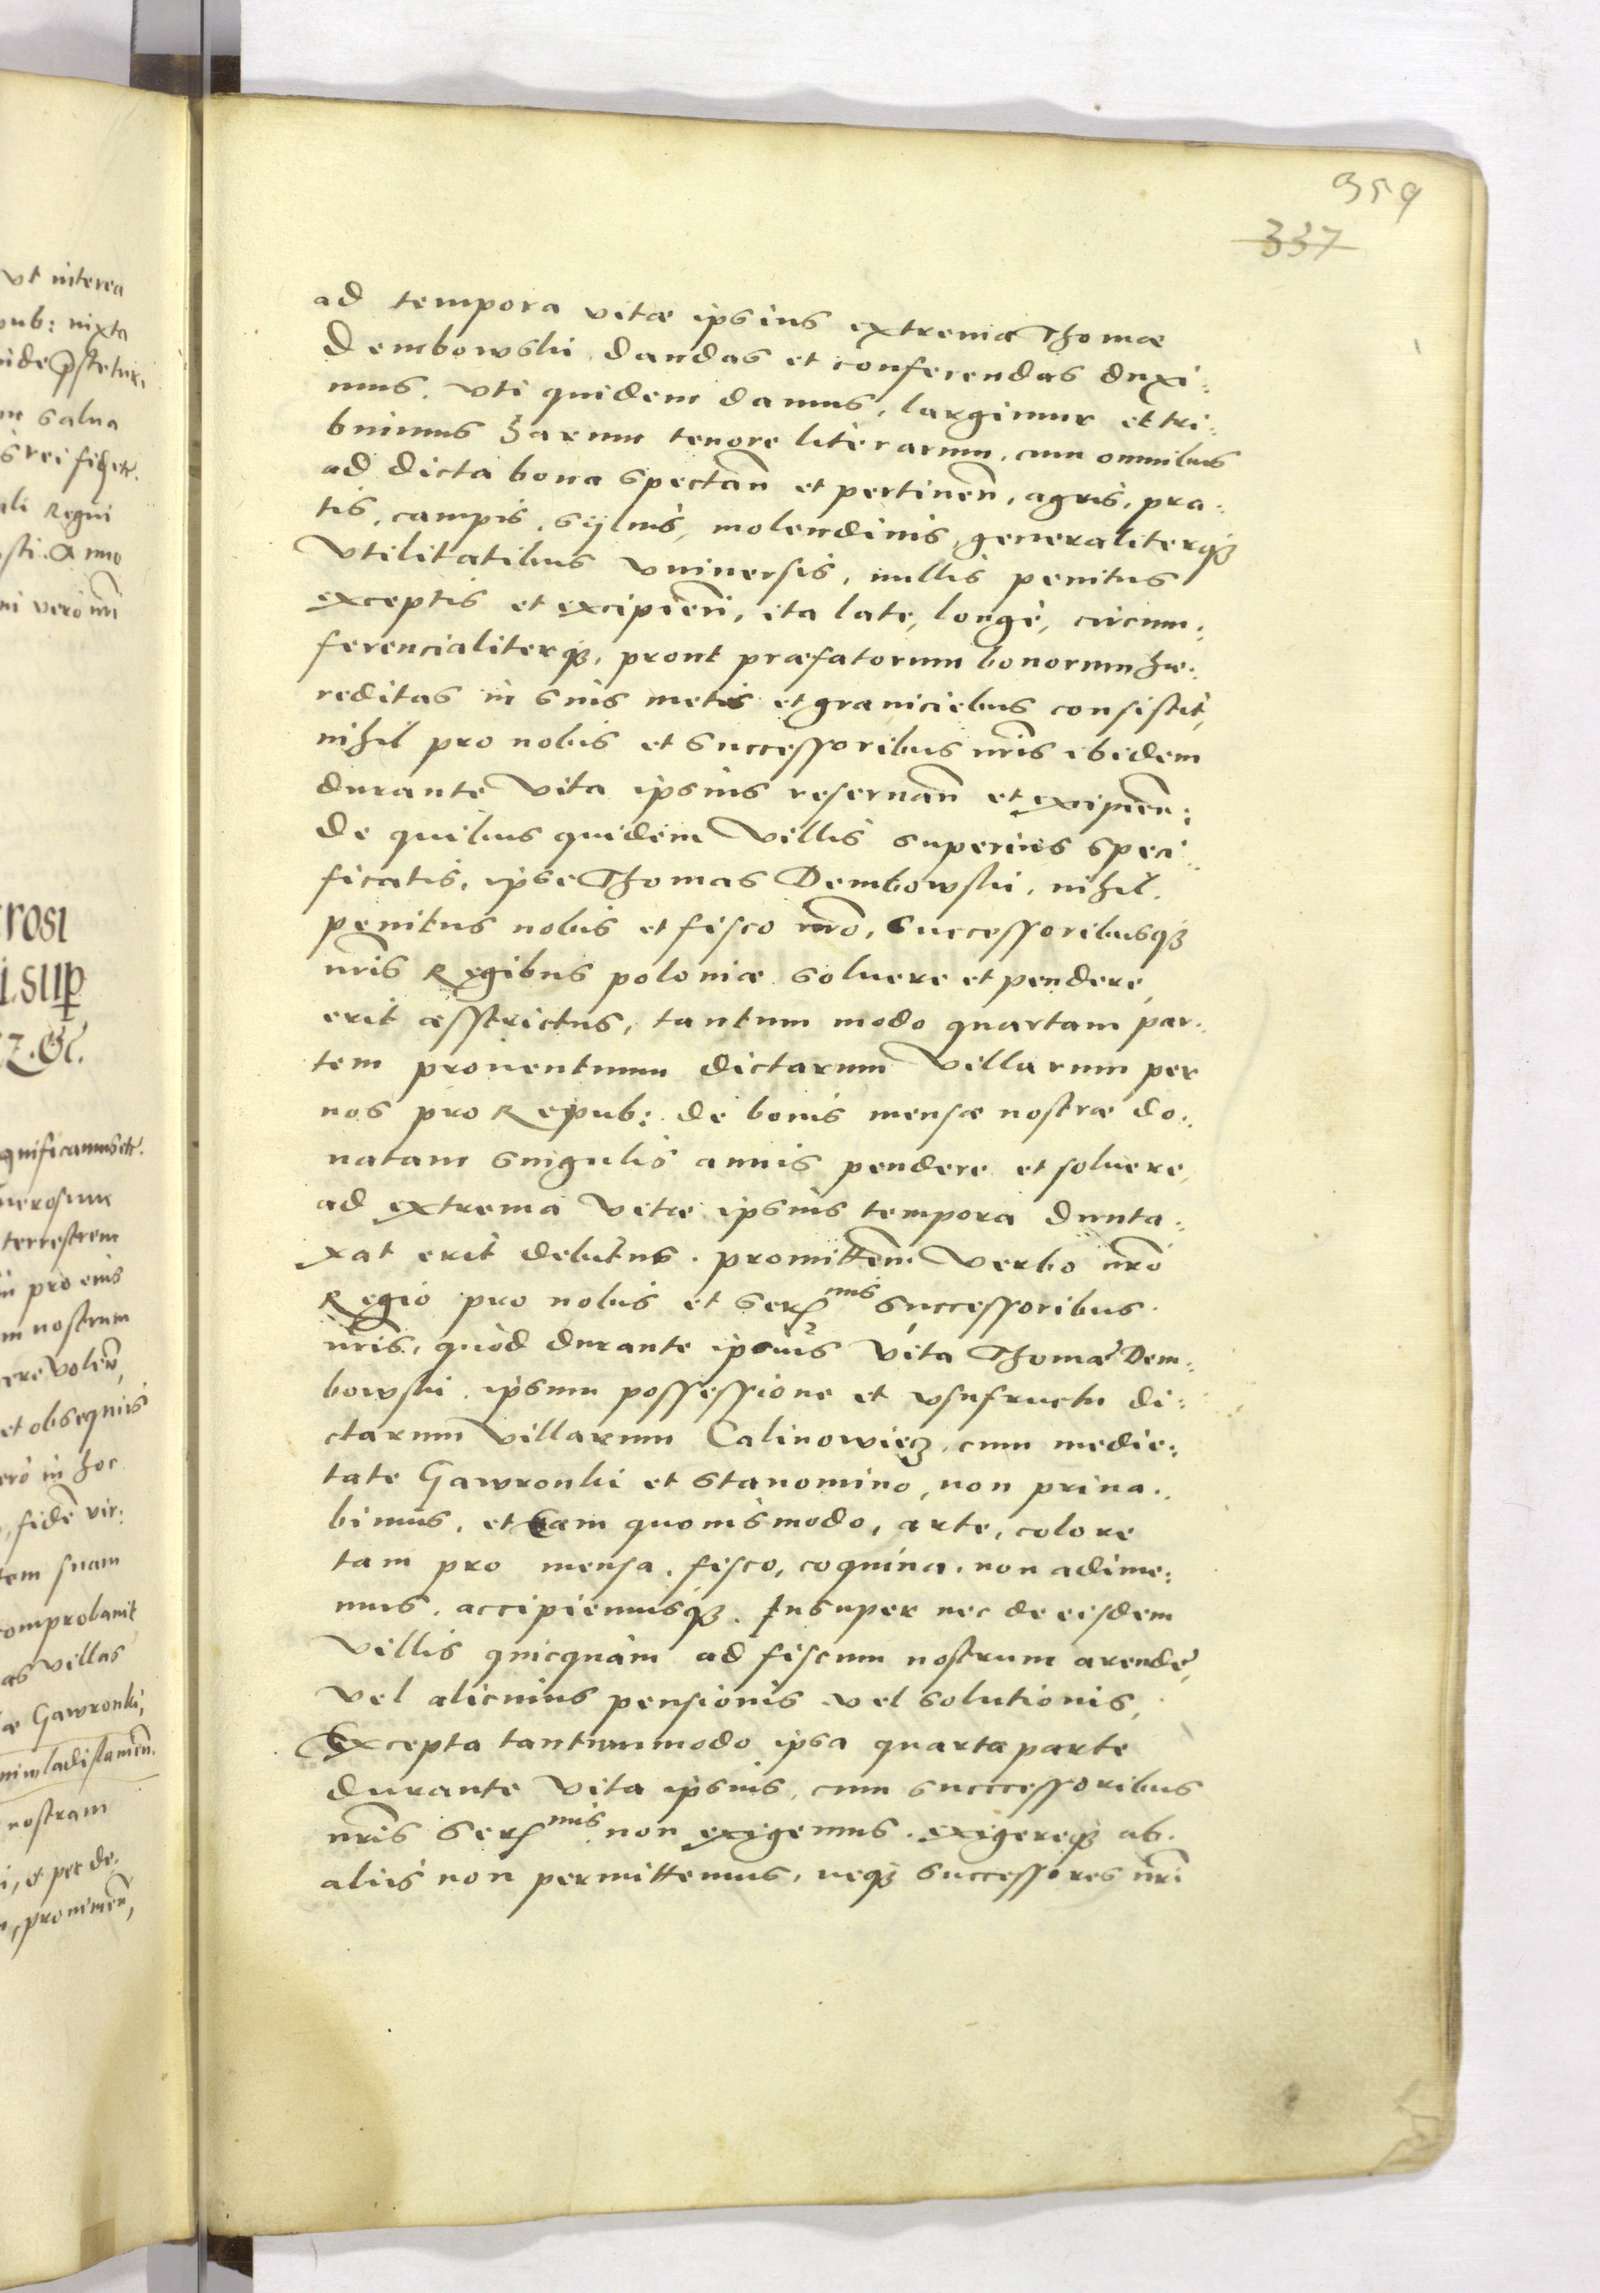 359
337
ad tempora vitæ ipsius extrema Thomæ
Dembowski dandas et conferendas duxi:
mus. Uti quidem damus, largimur et tri:
buimus harum tenore literarum, cum omnibus
ad dicta bona spectan̄ et pertinen̄, agris, pra:
tis, campis, syluis, molendinis, generaliterq₃
Vtilitatibus vniuersis, nullis penitus
exceptis et excipien̄, ita late, longè, circum:
ferencialiterq₃, prout præfatorum bonorum hæ:
reditas in suis metis et graniciebus consistit,
nihil pro nobis et successoribus nr̄is ibidem
durante Vita ipsius reseruan̄ et exipien̄:
De quibus quidem Villis superius speci:
ficatis, ipse Thomas Dembowski, nihil
penitus nobis et fisco nr̄o, Successoribusq₃
nr̄is Regibus poloniæ soluere et pendere,
erit æsstrictus, tantum modo quartam par:
tem prouentuum dictarum Villarum per
nos pro Repub: de bonis mensæ nostræ do:
natam singulis annis pendere et soluere,
ad extrema Vitæ ipsius tempora dunta:
xat erit debitus. promitten̄ Verbo nr̄o
Regio pro nobis et Ser^mis Successoribus
nr̄is, quòd durante ipsius Vita Thomæ Dem:
bowski ipsum possessione et vsufructu di:
ctarum Villarum Calinowiecz, cum medie:
tate Gawronki et Stanomino, non priua:
bimus, et Eam quouismodo, arte, colore
tam pro mensa, fisco, coquina, non adime:
mus, accipiemusq₃. Insuper nec de eisdem
Villis quicquam ad fiscum nostrum arendę,
Vel alicuius pensionis vel solutionis,
Excepta tantummodo ipsa quarta parte
durante Vita ipsius, cum succcessoribus
nr̄is Ser^mis non exigemus, exigereq₃ ab
aliis non permittemus, neq₃ Successores nr̄i